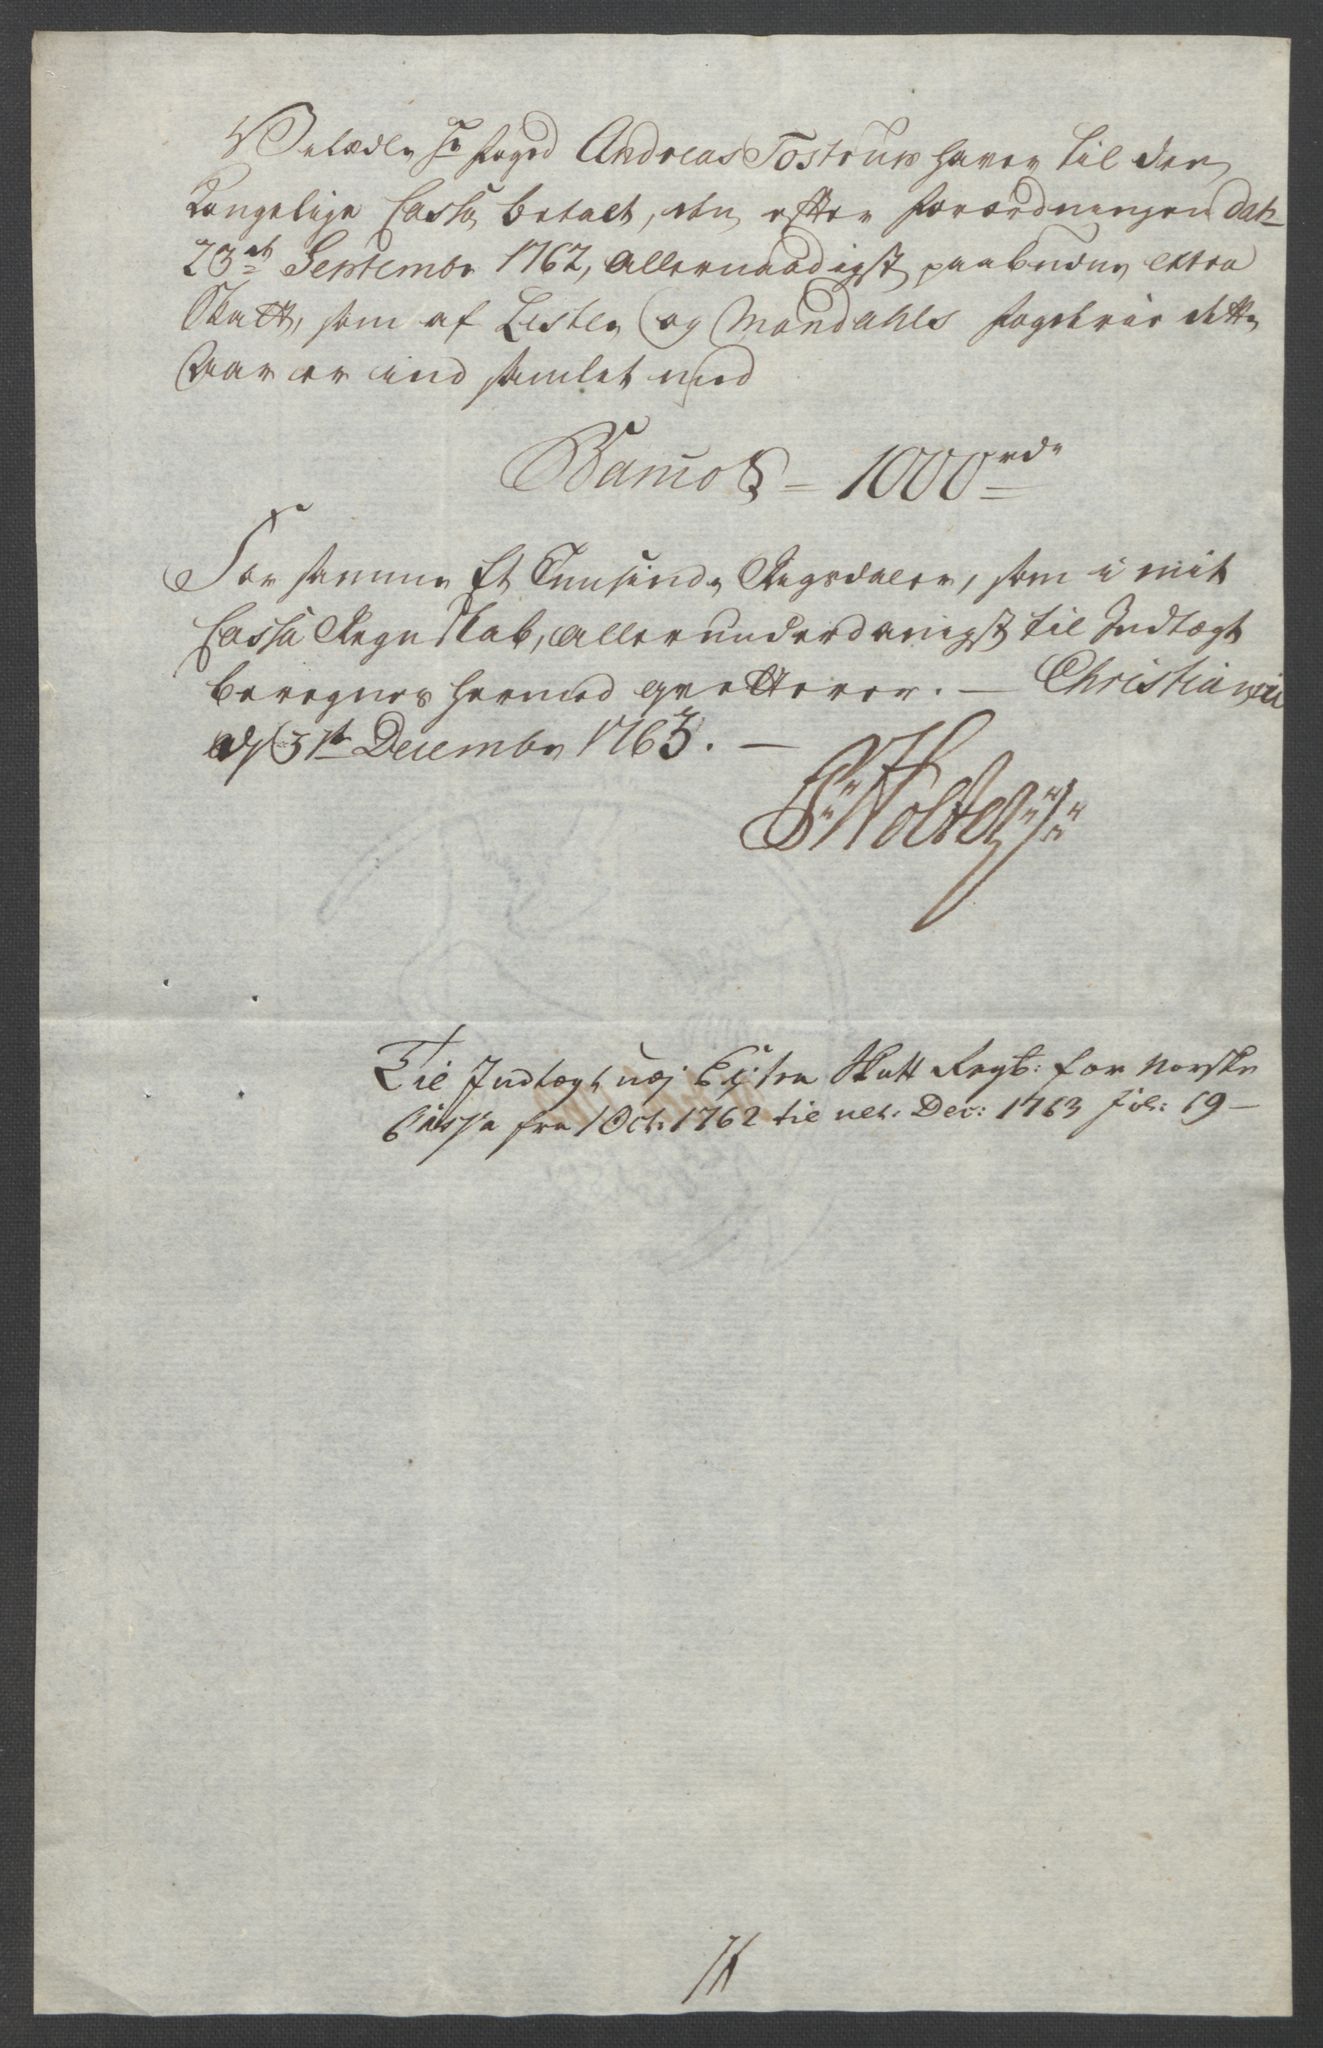 Velædle Hr Foged Andreas Tostrup haver til den
Kongelige Cassa betalt, den efter Forordningen dat
23de Septembr 1762, allernaadigst paabudne extra
Skatt, som af Lister og Mandahls Fogderie dette
Aar er ind samlet med
1000 rdr
For samme Et Tuusinde Rigsdaler, som i mit
Cassa Regnskab, allerunderdanigst til Indtægt
beregnes hermed qvitterer. — Christiania
d 31te Decembr 1763. —
Holter
Til Indtægt udj Extra Skatt Regb: for Norske
Cassa fra 1 Oct: 1762 til ult: Dec: 1763 fol: 19 —